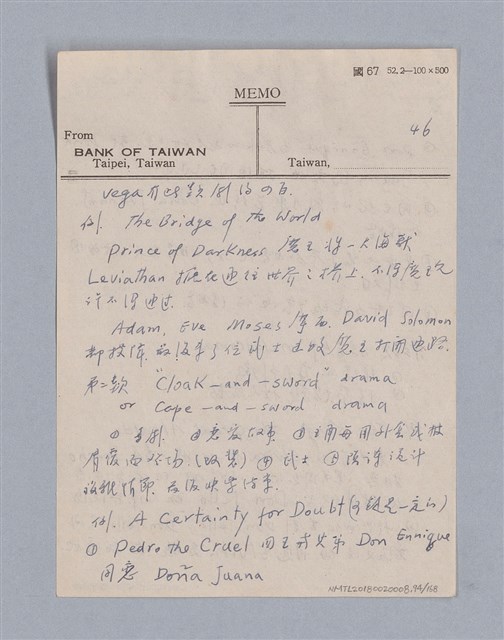 國 67 52.2—100×500
MEMO
46
From
BANK OF TAIWAN
Taipei, Taiwan
Taiwan,
Vega 有此類劇約四百
例. The Bridge of the World
Prince of Darkness 魔王將一大海獸
Leviathan 把他通往世界之橋上, 不得魔王允
許不得通過.
Adam, Eve Moses 摩西, David Solomon
都投降. 最後來了位武士击敗魔王打開通路.
第二款 "Cloak-and-sword" drama
or Cape-and-sword drama
① 喜劇. ② 恋爱故事 ③ 主角每用外套或披
肩 (改裝) ④ 武士 ⑤
最後快樂結束.
例. A Certainty for Doubt
① Pedro the Cruel 國王 其弟 Don Ennique
同戀 Doña Juana
NMTL20180020008.94/168